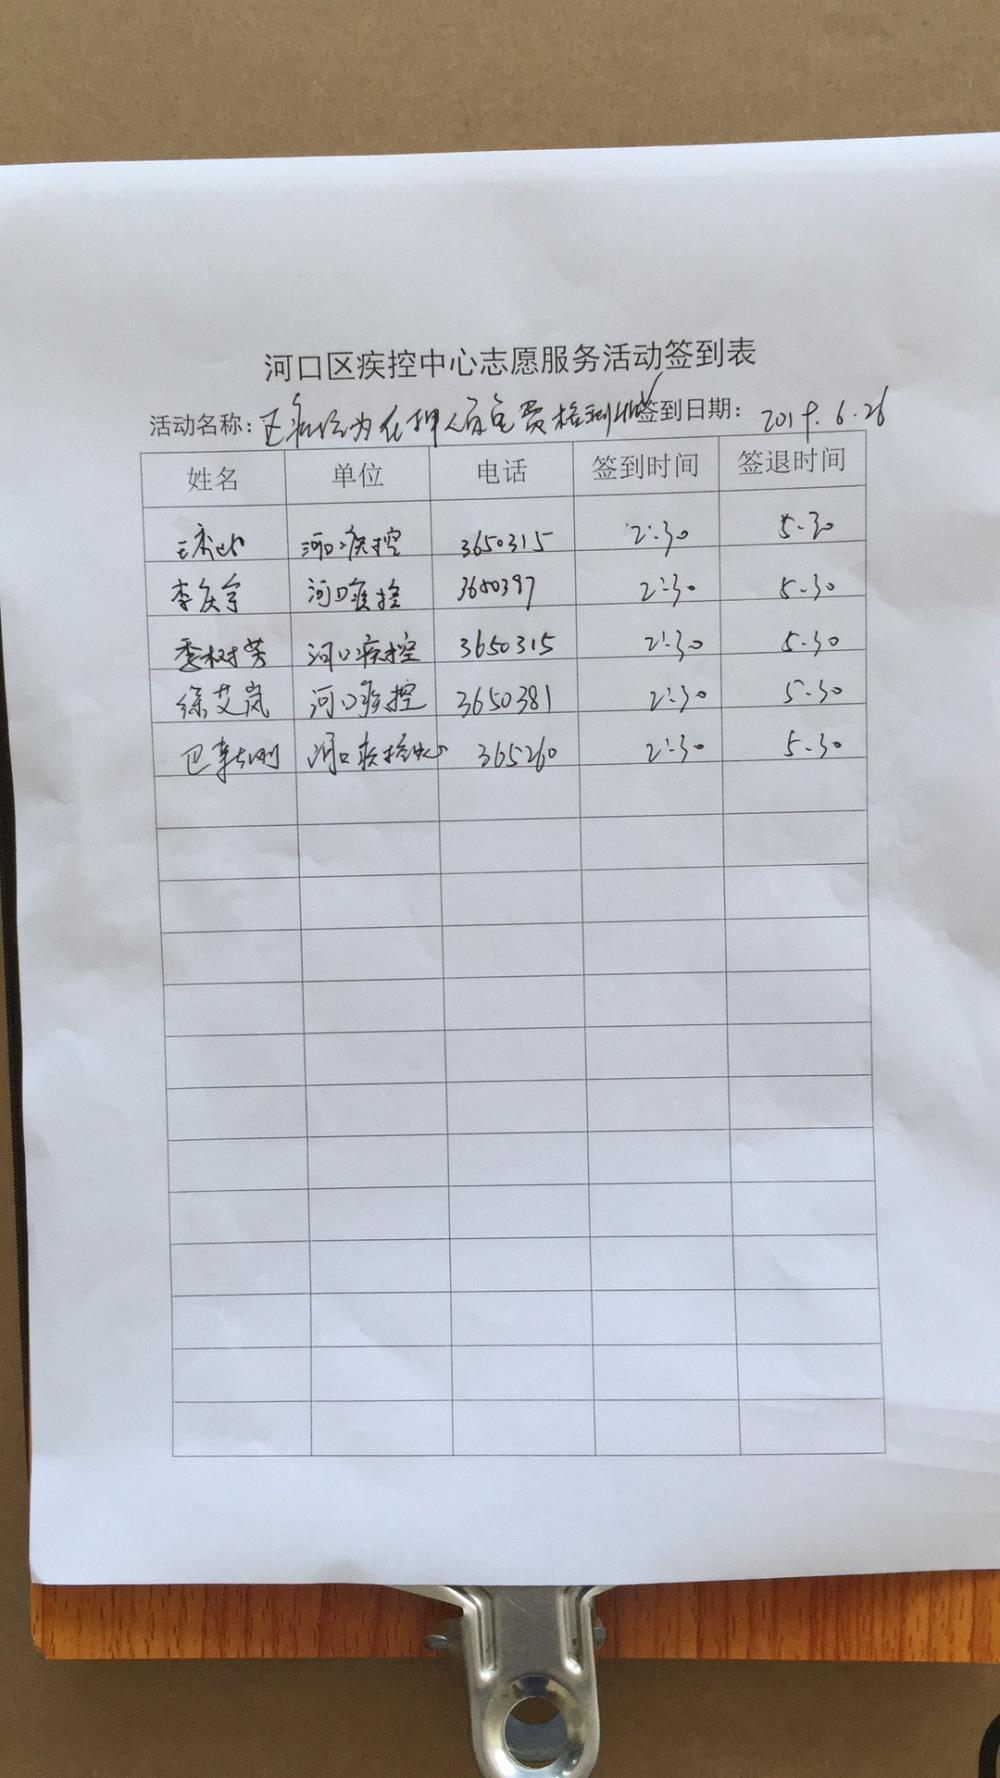 河口区疾控中心志愿服务活动签到表
活动名称：区疾控为在押人员免费检测HIV 签到日期： 2019.6.26
姓名 单位 电话 签到时间 签退时间
河口疾控 3650315 2:30 5.30
李庆宇 河口疾控 3650397 2:30 5.30
季树芳 河口疾控 3650315 2:30 5.30
徐艾岚 河口疾控 3650381 2:30 5.30
巴新刚 河口疾控中心 365260 2:30 5.30